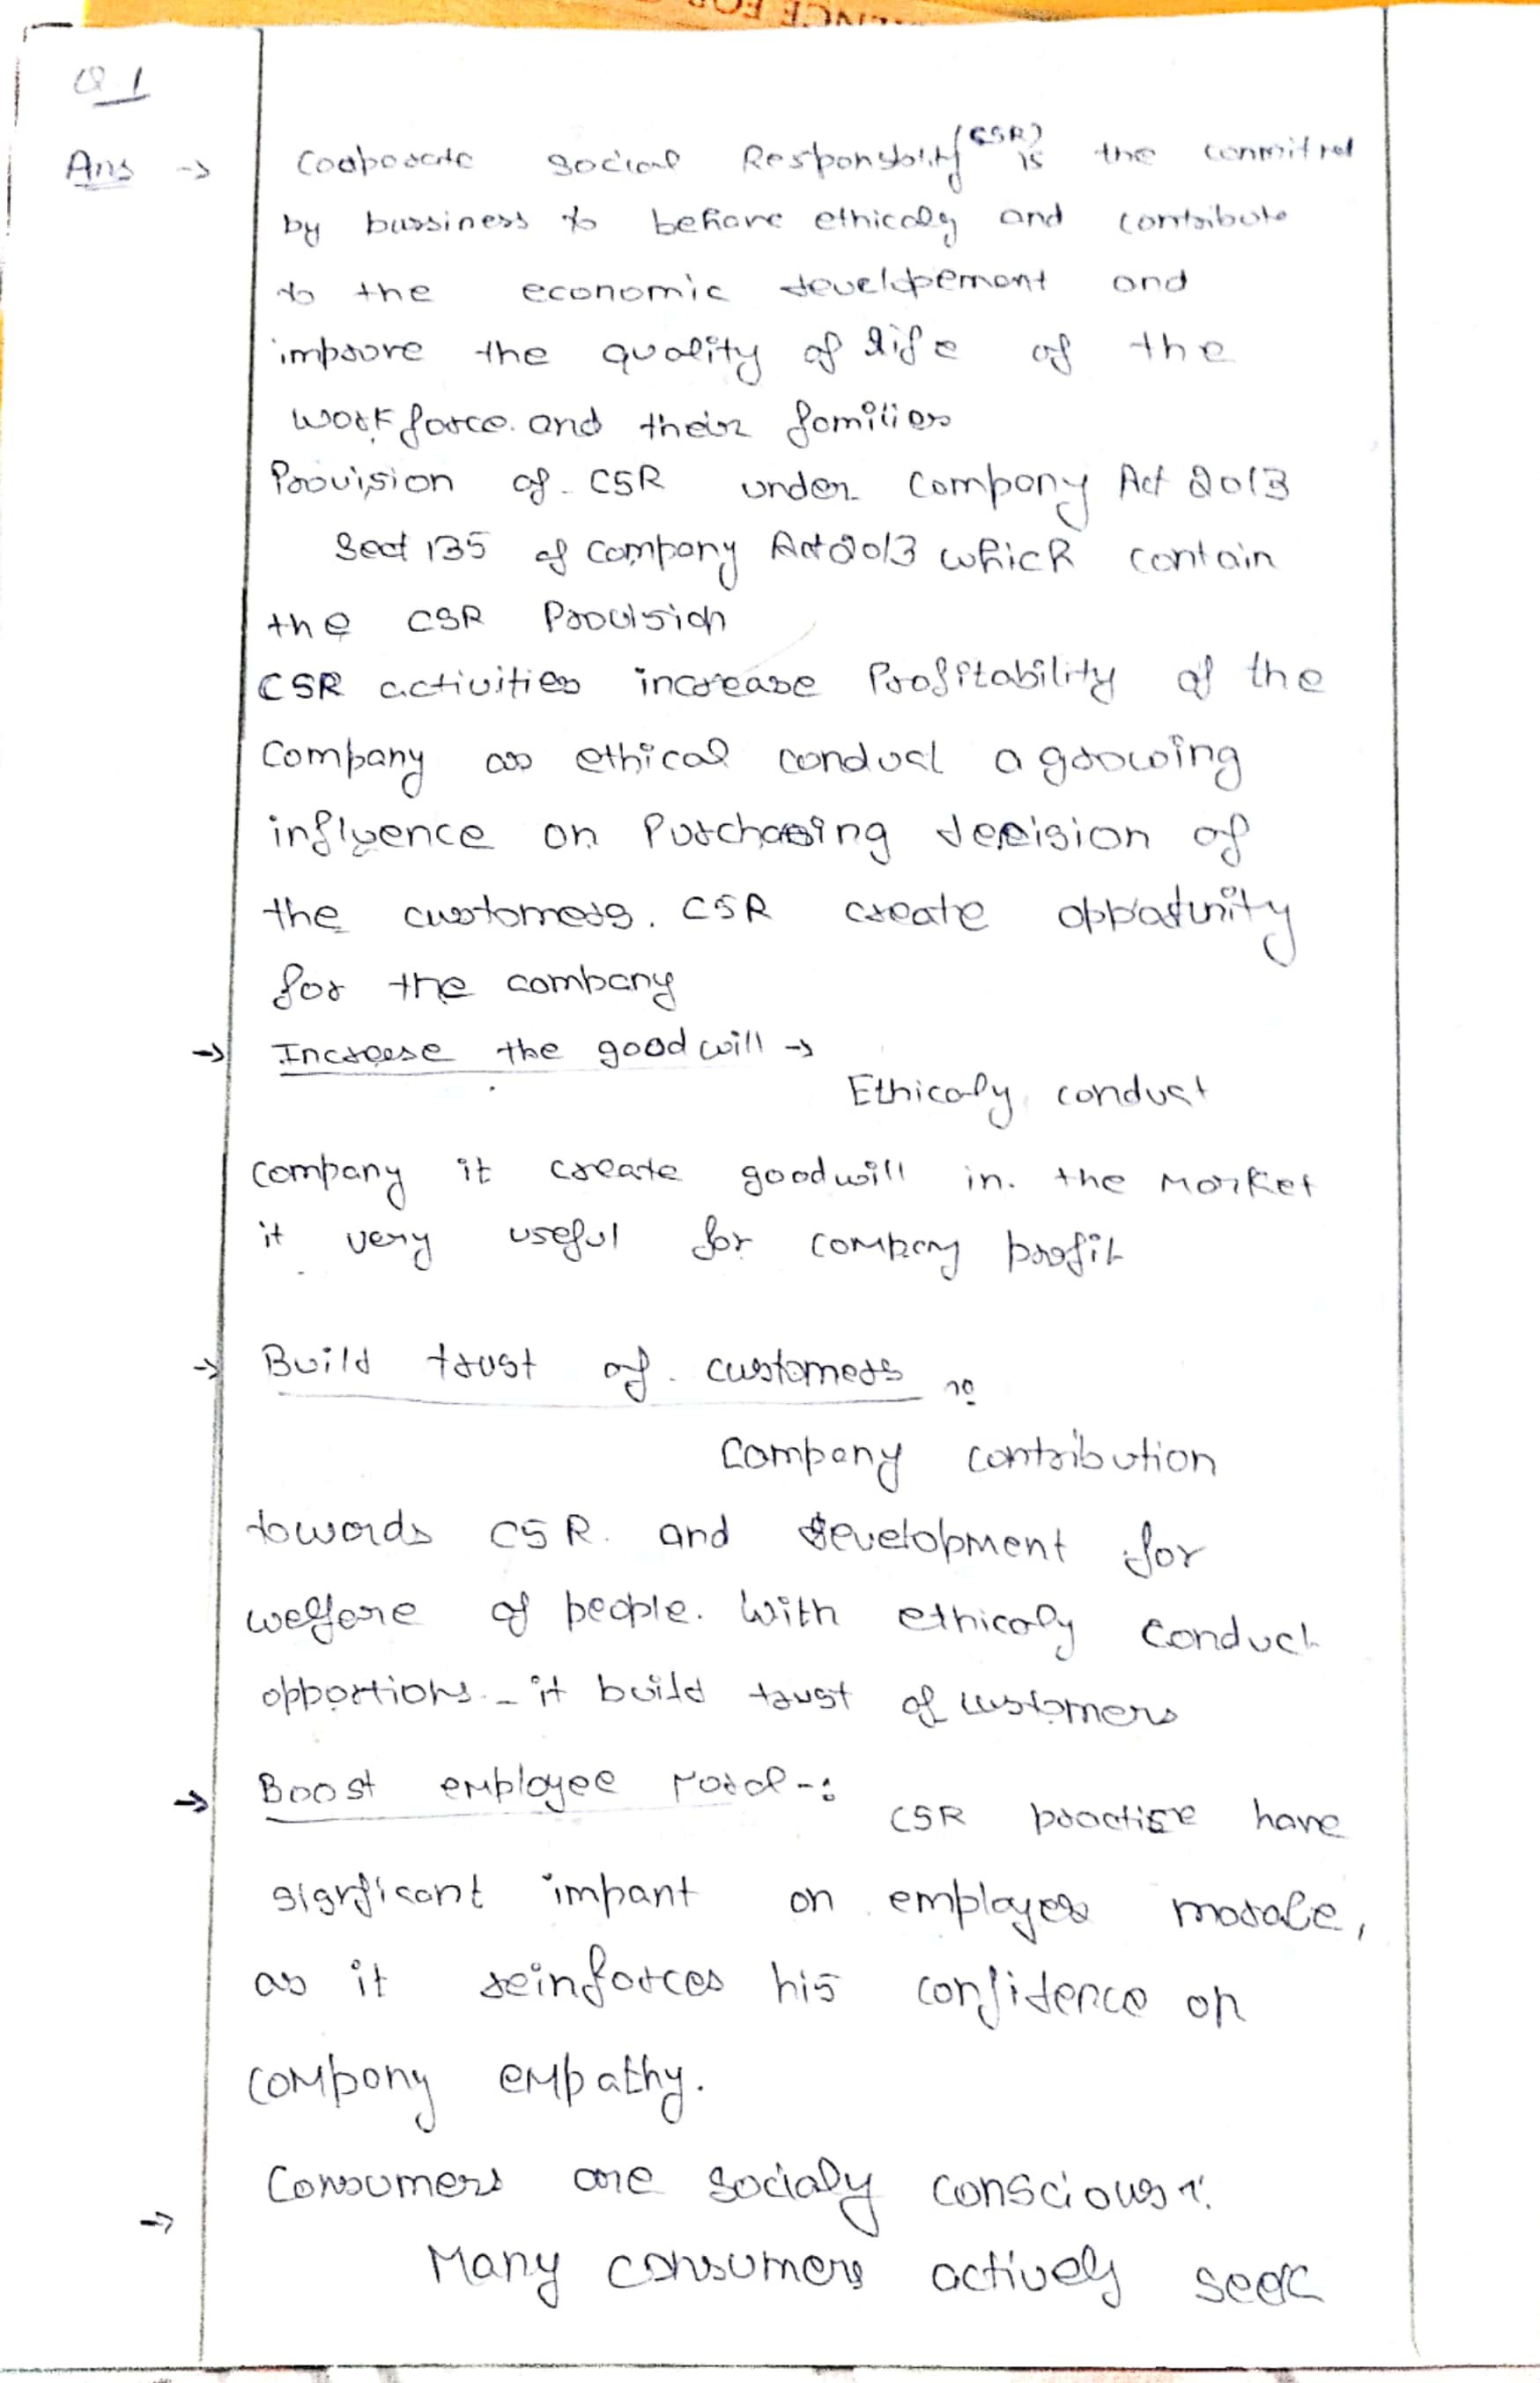 Q.1
Ans → Corporate social Responsibility (CSR) is the
by bussiness to behave ethicaly and contribute
to the economic developement and
improve the quality of life of the
workforce. and their families
Provision of CSR under Company Act 2013
Sect 135 of Company Act 2013 which contain
the CSR Provision
CSR activities increase Profitability of the
Company as ethical conduct a growing
influence on Purchasing decision of
the customers. CSR create
for the company
→ Increase the goodwill →
Ethicaly conduct
company it create goodwill in. the Market
it very useful for company profit
→ Build trust of customers
Company contribution
towards CSR. and development for
welfare of people. With ethicaly conduct
it build trust of customers
→ Boost employee -:
CSR practise have
on employees morale,
as it reinforces his confidence on
company empathy.
→ Consumers are socialy conscious
Many consumers actively seek